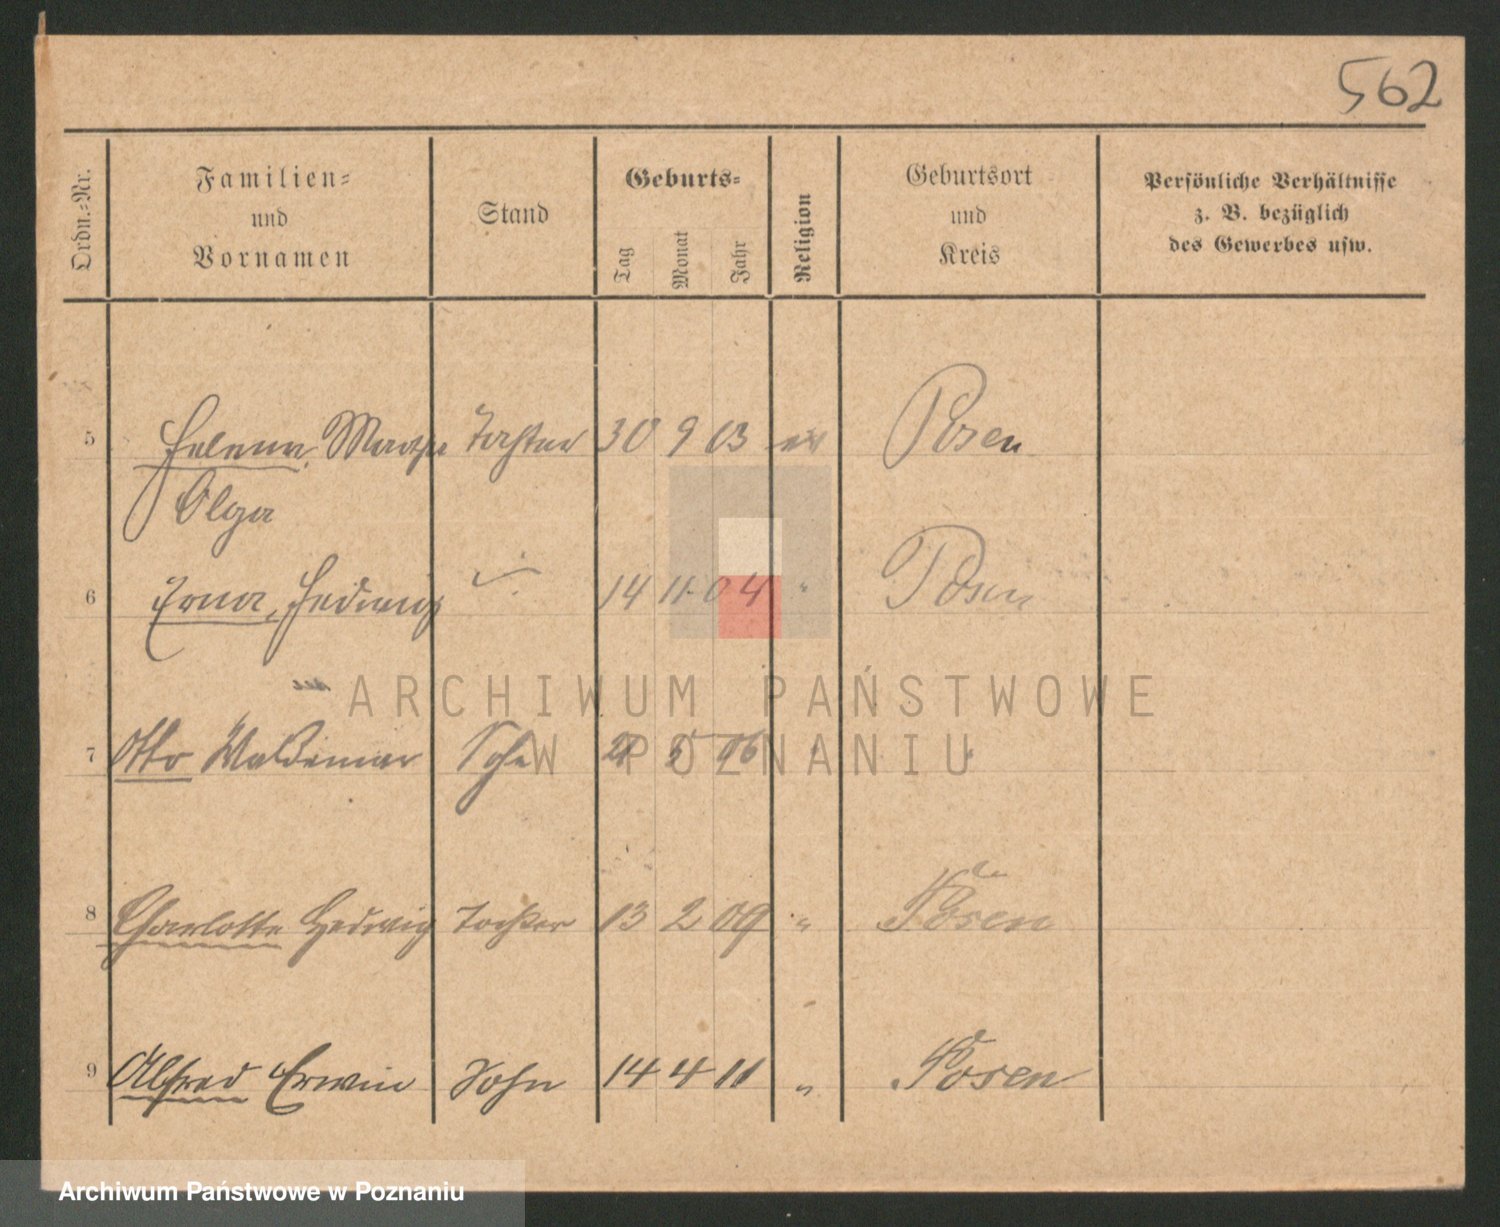 562
Ordn.=Nr.
Familien=
und
Vornamen
Stand
Geburts=
Tag
Monat
Jahr
Religion
Geburtsort
und
Kreis
Persönliche Verhältnisse
z. B. bezüglich
des Gewerbes usw.
5 Helene, Martha Tochter 30 9 03 ev Posen
Olga
6 Erna, Hedwig " 14 11 04 " Posen
7 Otto Waldemar Sohn 5 06 " "
8 Charlotte Hedwig Tochter 13 2 09 " Posen
9 Alfred Erwin Sohn 14 4 11 " Posen
ARCHIWUM PAŃSTWOWE
W POZNANIU
Archiwum Państwowe w Poznaniu